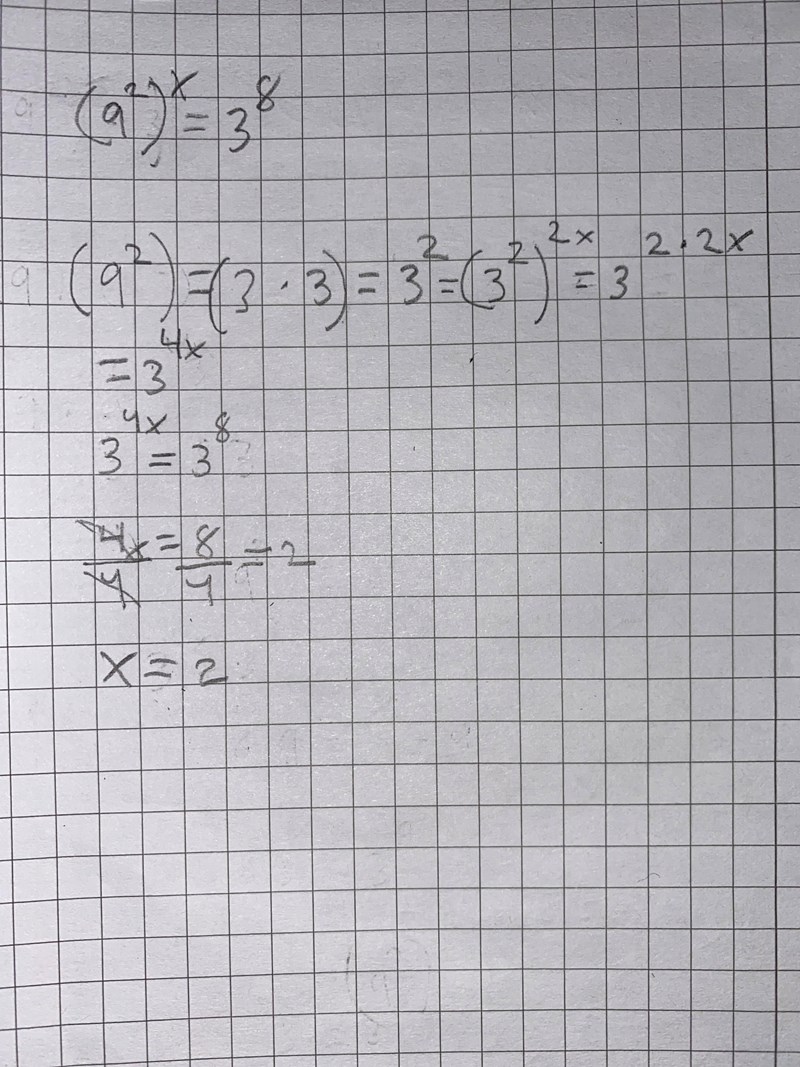 (9²)ˣ = 3⁸
(9²) = (3 · 3) = 3² = (3²)²ˣ = 3^2·2x
= 3⁴ˣ
3⁴ˣ = 3⁸
4x/4 = 8/4 = 2
x = 2